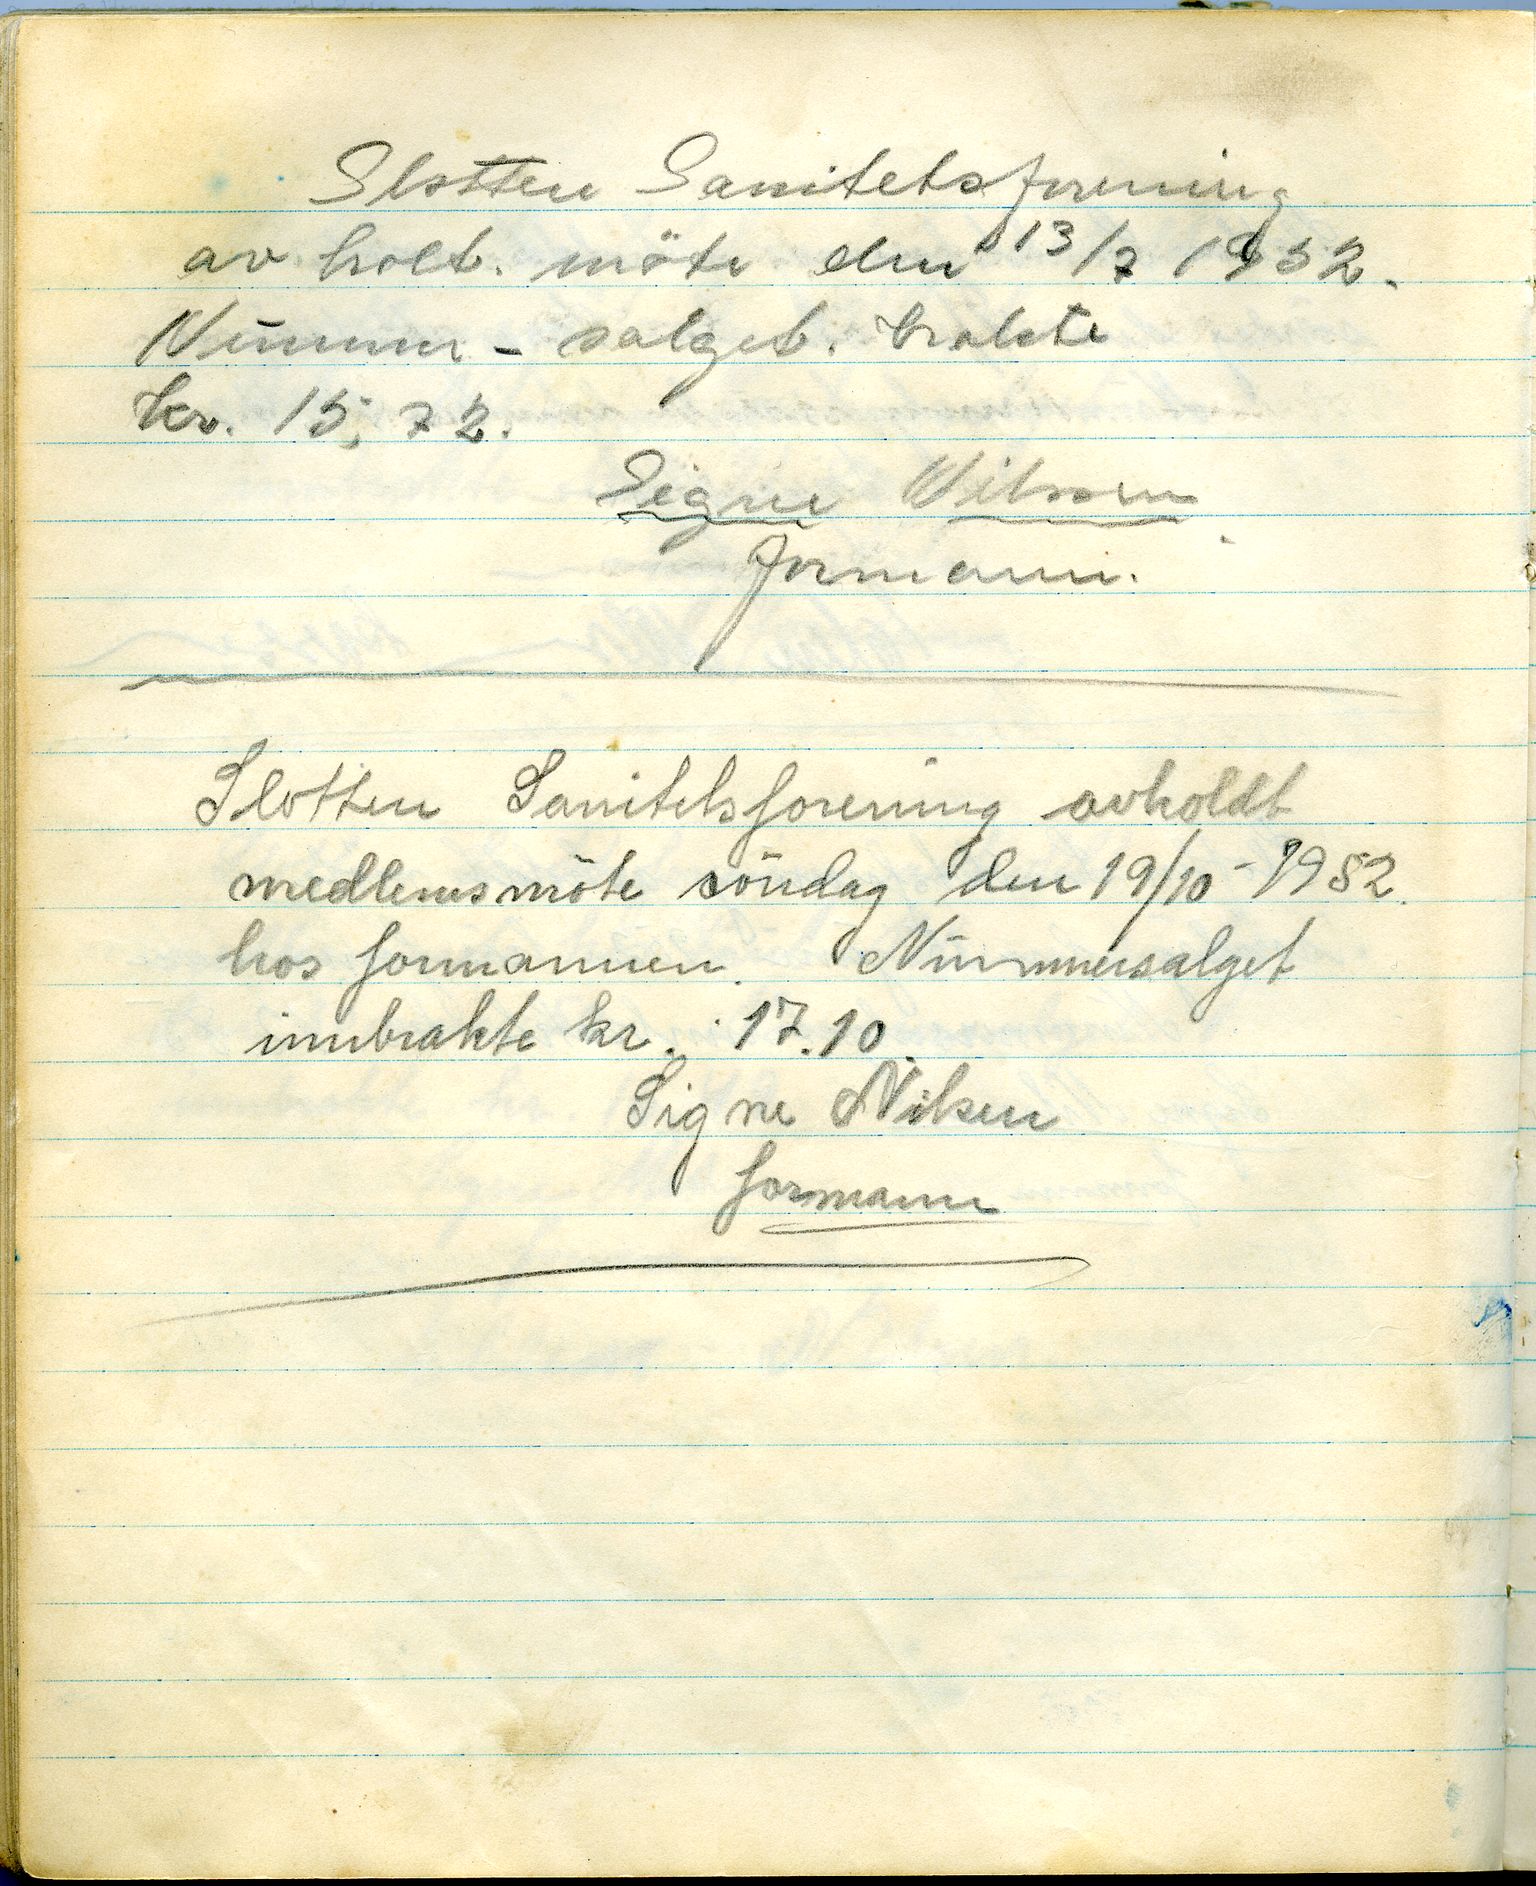 Slotten Sanitetsforening
av holt. möte den 13/7 1952.
Nummer - salget. brakte
kr. 15,72.
Signe Nilsen
formann.
Slotten Sanitetsforening avholdt
medlemsmöte söndag den 19/10 - 1952.
hos formannen. Nummersalget
innbrakte kr. 17.10.
Signe Nilsen
formann